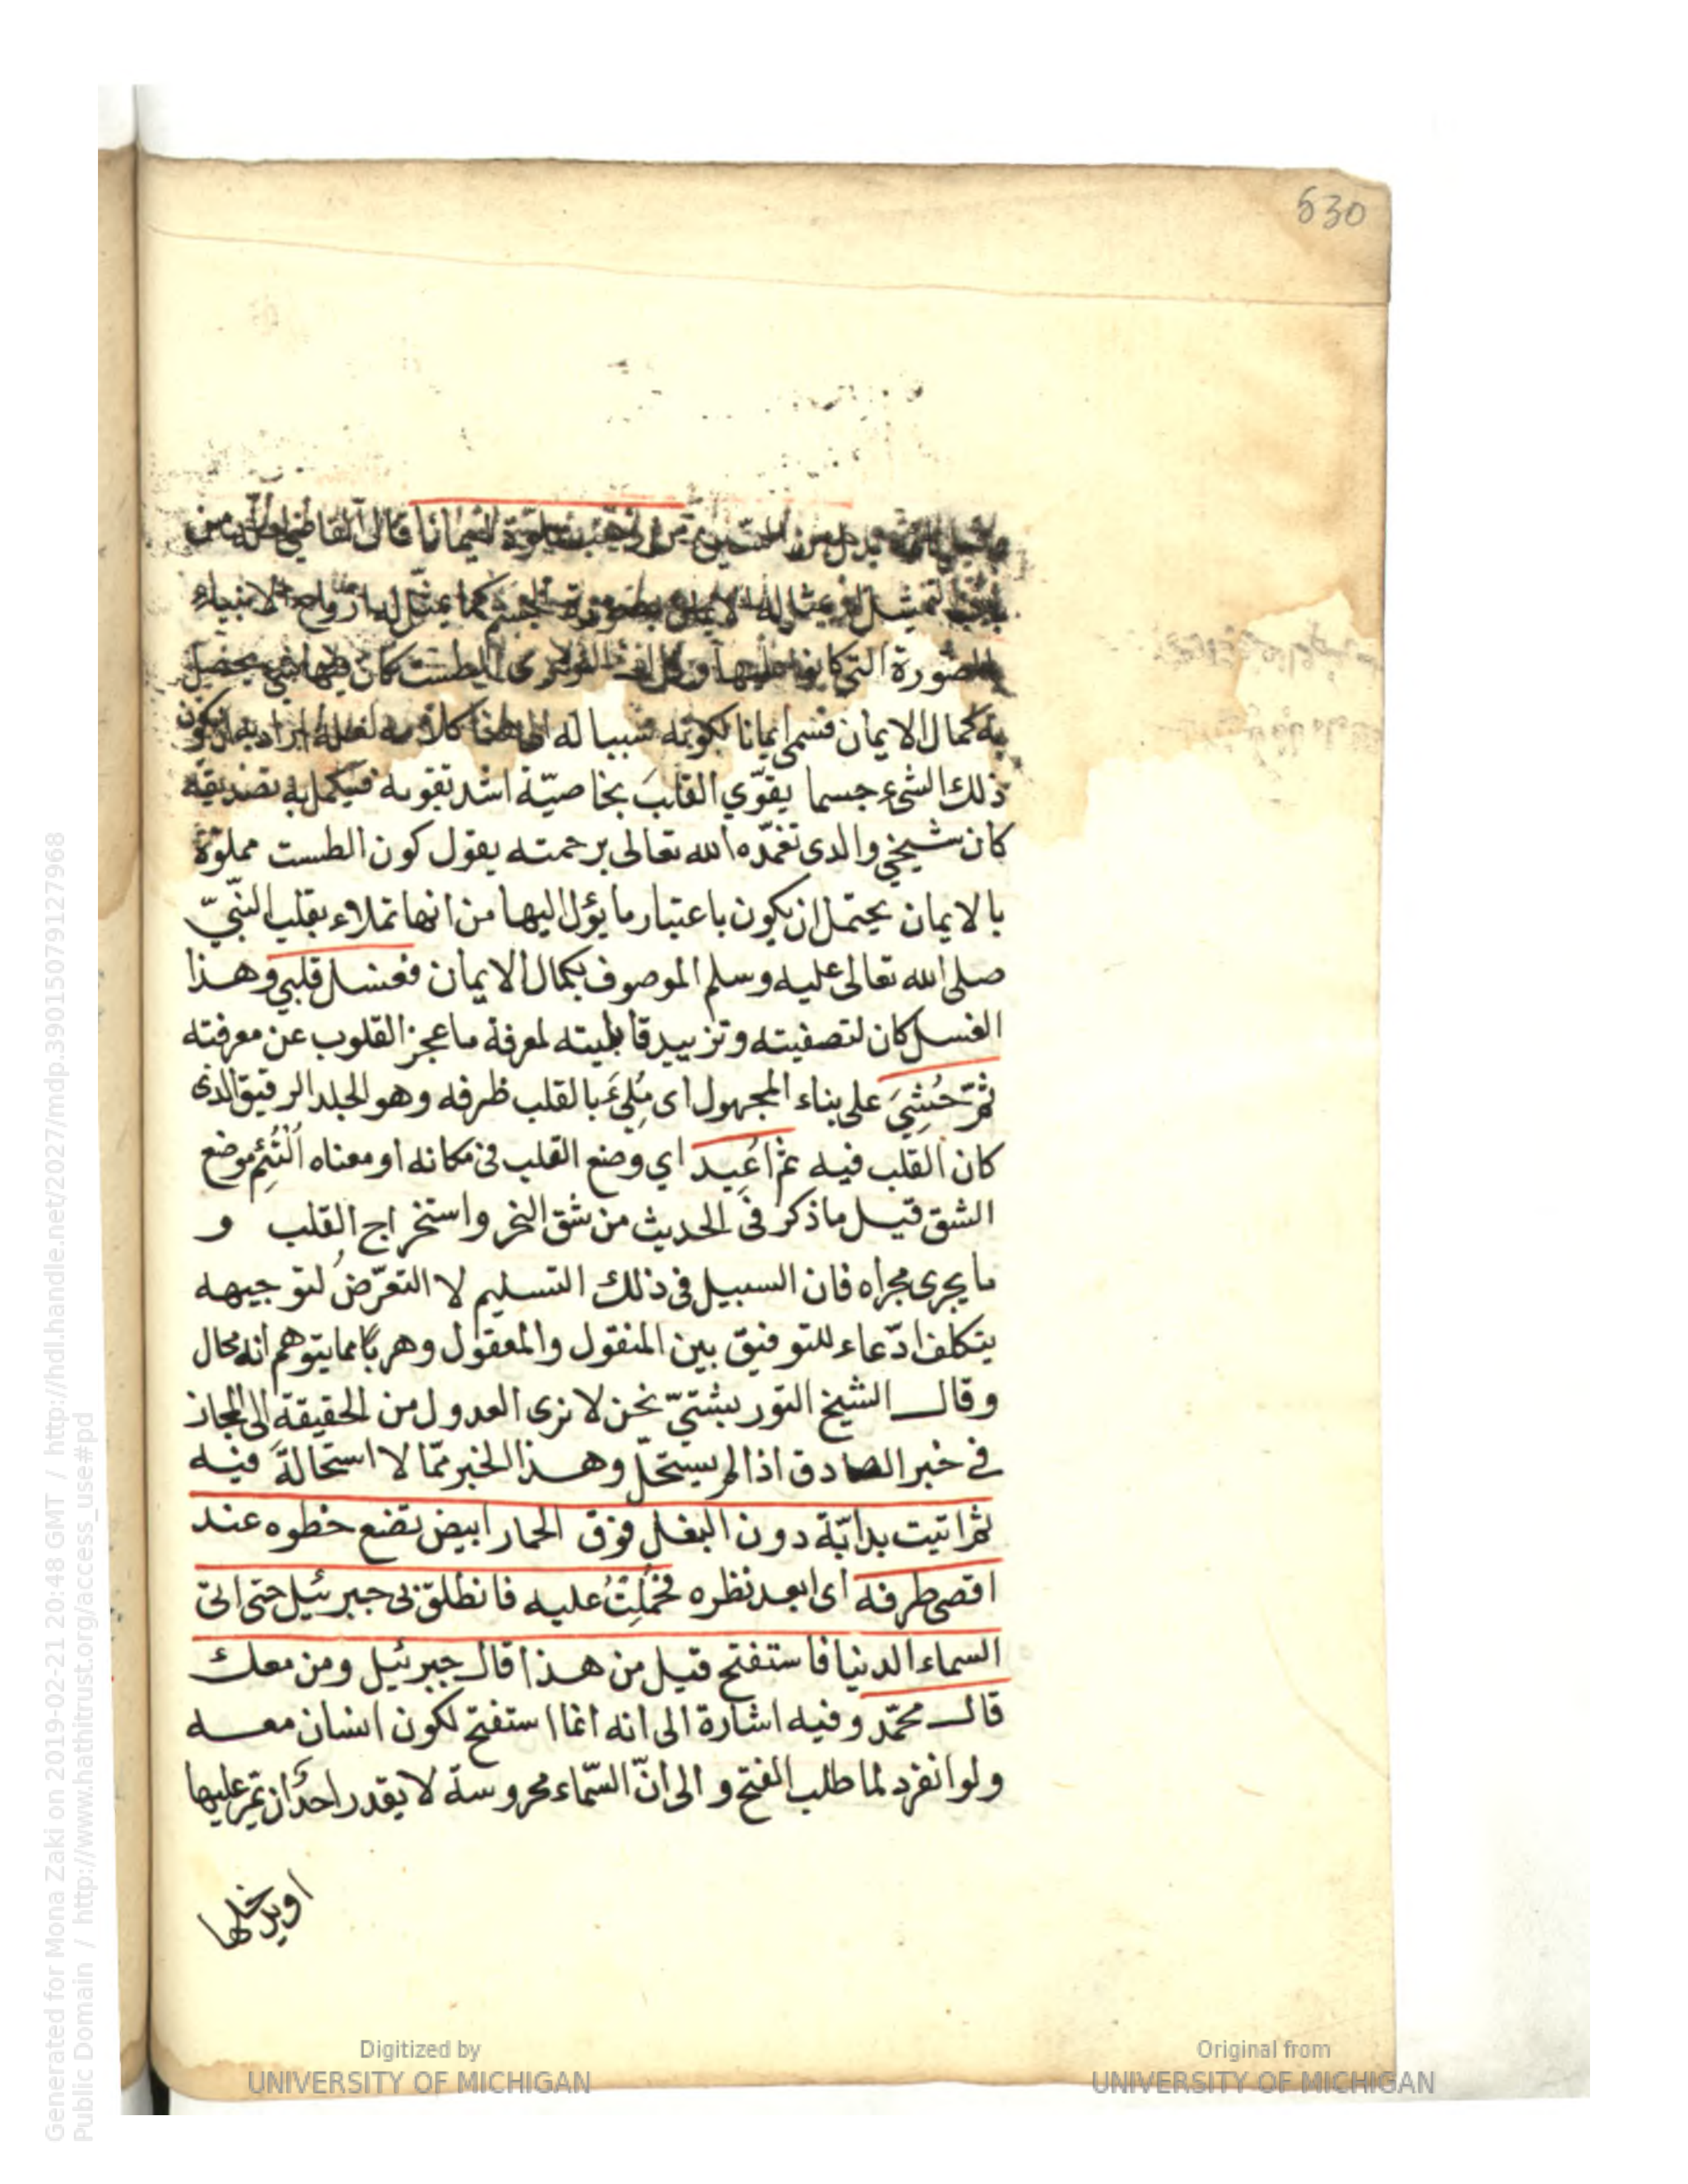 630
قال القاضي لعله من
باب التمثيل اذ تمثل له كما تمثل له ارواح الانبياء
بالصورة التي كانوا عليها الطست كان فيها شئ يحصل
به كمال الايمان فسمى ايمانا لكونه سببا له الى هنا كلامه لعله اراد به ان يكون
ذلك الشئ جسما يقوّي القلبَ بخاصيّة اشد تقوية فيكمل به تصديقه
كان شيخي والدى تغمّده الله تعالى برحمته يقول كون الطست مملوّة
بالايمان يحتمل ان يكون باعتبار ما يؤل اليها من انها تملاء بقلب النّبيّ
صلى الله تعالى عليه وسلم الموصوف بكمال الايمان فغسل قلبي وهذا
الغسل كان لتصفيته وتزييد قابليته لمعرفة ما عجز القلوب عن معرفته
ثم حُشِيَ على بناء المجهول اى مُلِئَ بالقلب ظرفه وهو الجلد الرقيق الذى
كان القلب فيه ثم اُعِيد اي وضع القلب فى مكانه او معناه اُلتُئِم موضع
الشق قيل ما ذكر فى الحديث من شق النحر واستخراج القلب و
ما يجرى مجراه فان السبيل فى ذلك التسليم لا التعرّض لتوجيهه
يتكلف ادّعاء للتوفيق بين المنقول والمعقول وهربًا مما يتوهم انه محال
وقال الشيخ التوربشتيّ نحن لا نرى العدول من الحقيقة الى المجاز
في خبر الصادق اذا لم يستحل وهذا الخبر ممّا لا استحالةَ فيه
ثم اتيت بدابّة دون البغل فوق الحمار ابيض تضع خطوه عند
اقصى طرفه اى ابعد نظره فحُمِلتُ عليه فانطلق بى جبرئيل حتى اتى
السماء الدنيا فاستفتح قيل من هذا قال جبرئيل ومن معك
قال محمّد وفيه اشارة الى انه انما استفتح لكون انسان معه
ولو انفرد لما طلب الفتح و الى انّ السّماء محروسة لا يقدر احدٌ ان تمرّ عليها
او يدخلها
Digitized by
UNIVERSITY OF MICHIGAN
Original from
UNIVERSITY OF MICHIGAN
Generated for Mona Zaki on 2019-02-21 20:48 GMT / http://hdl.handle.net/2027/mdp.39015079127968
Public Domain / http://www.hathitrust.org/access_use#pd